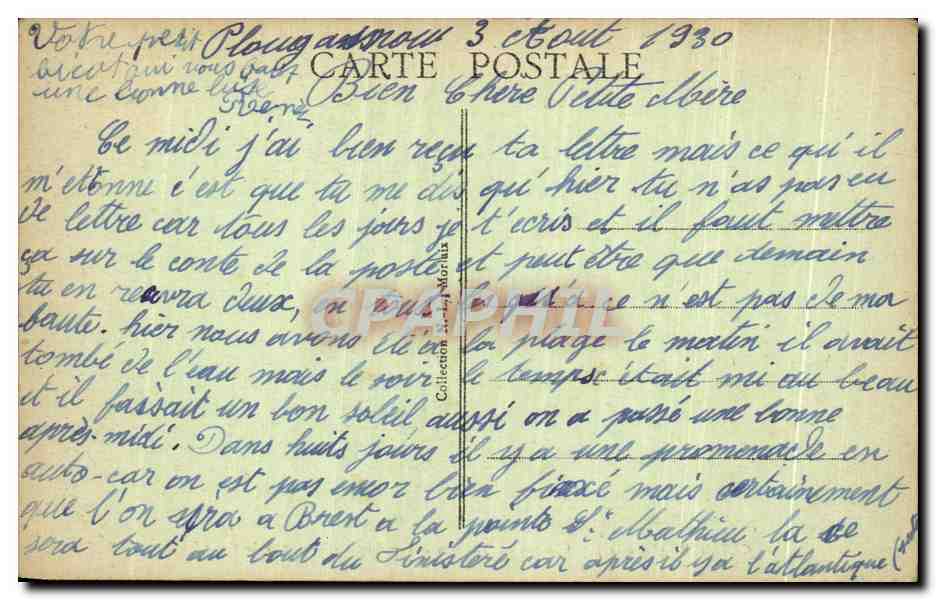 Votre petit
bicot qui vous
une bonne bise
René
Plougasnou 3 Aout 1930
CARTE POSTALE
Bien Chère Petite Mère
Ce midi j'ai bien reçu ta lettre mais ce qu'il
m'etonne c'est que tu me dis qu'hier tu n'as pas eu
de lettre car tous les jours je t'écris et il faut mettre
ça sur le conte de la poste et peut être que demain
tu en recevra deux, en tous les ce n'est pas de ma
faute. hier nous avons été à la plage le matin il avait
tombé de l'eau mais le soir le temps c'était mi au beau
et il faissait un bon soleil, aussi on a passé une bonne
après-midi. Dans huits jours il y a une promenade en
auto-car on est pas encor bien fixé mais certainement
que l'on sera a Brest a la pointe St Mathieu la ce
sera tout au bout du Finistère car après il y a l'atlantique
Collection N.-L., Morlaix
CPAPHIL